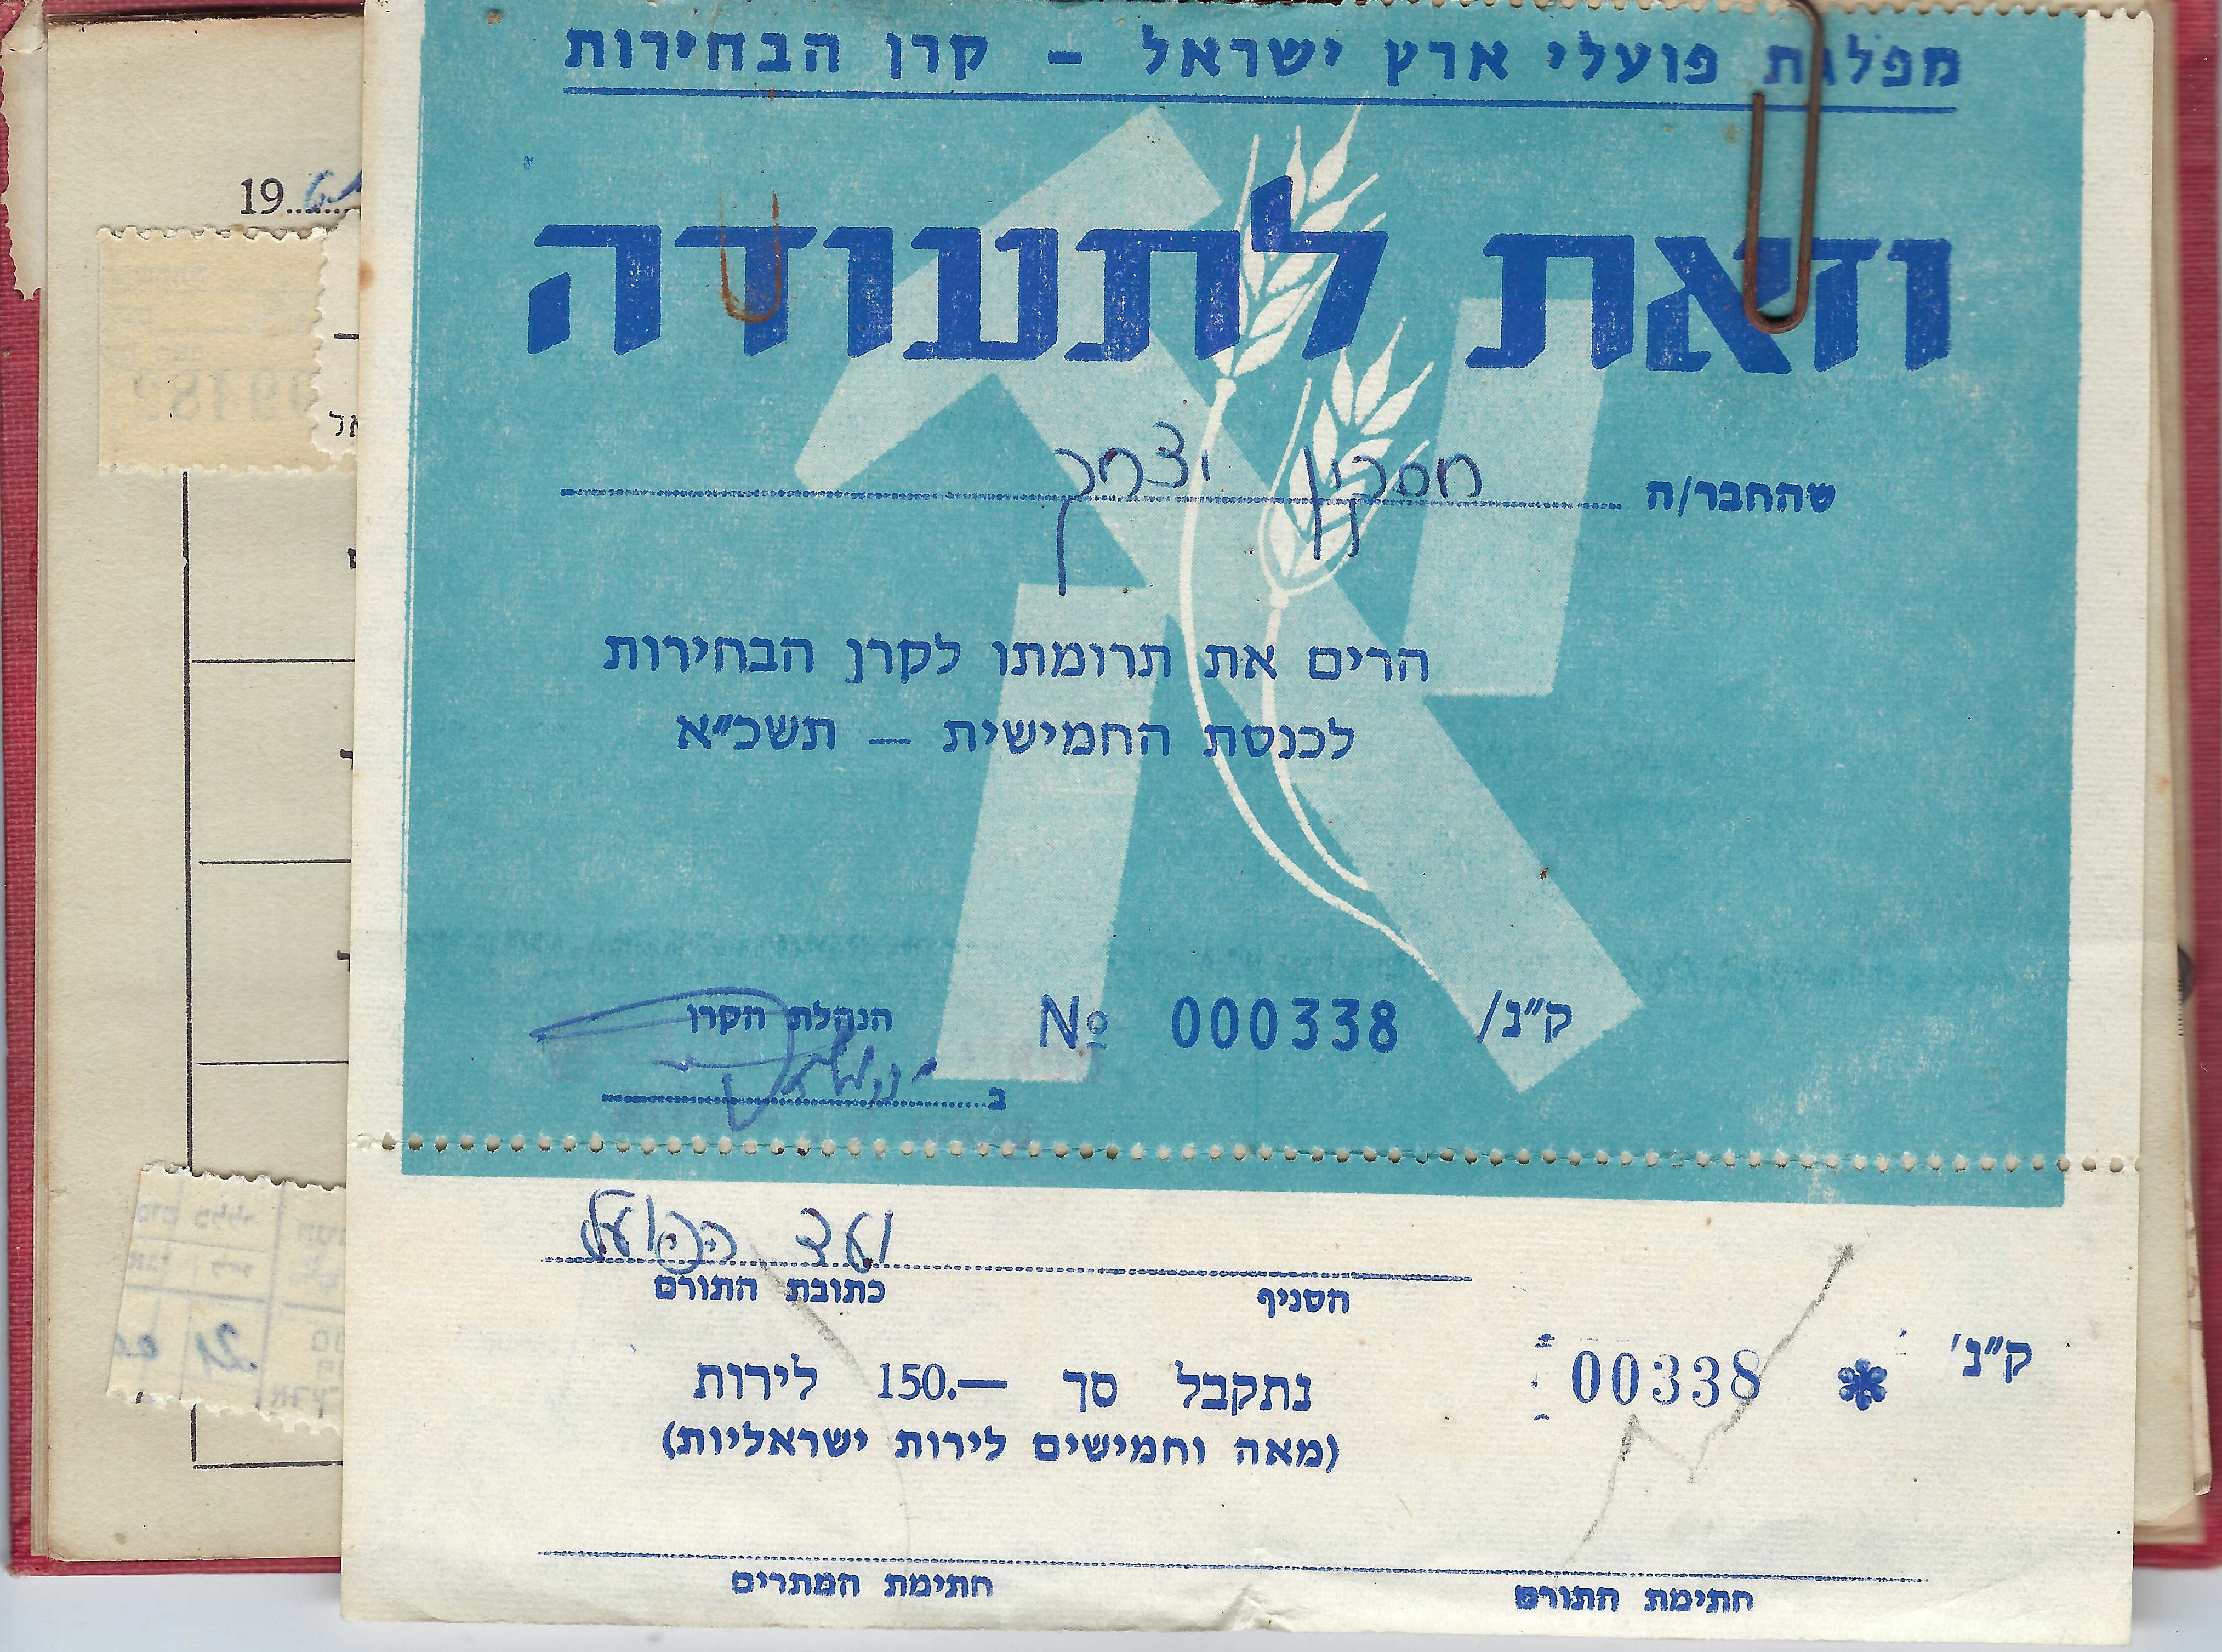 מפלגת פועלי ארץ ישראל - קרן הבחירות
19
וזאת לתעודה
שהחבר/ה חסכון יצחק
הרים את תרומתו לקרן הבחירות
לכנסת החמישית — תשכ״א
ק״נ/ 000338 №
הנהלת הקרן
ב
ועד הפועל
הסניף כתובת התורם
ק״נ' * 00338
נתקבל סך 150.— לירות
(מאה וחמישים לירות ישראליות)
חתימת התורם חתימת המתרים